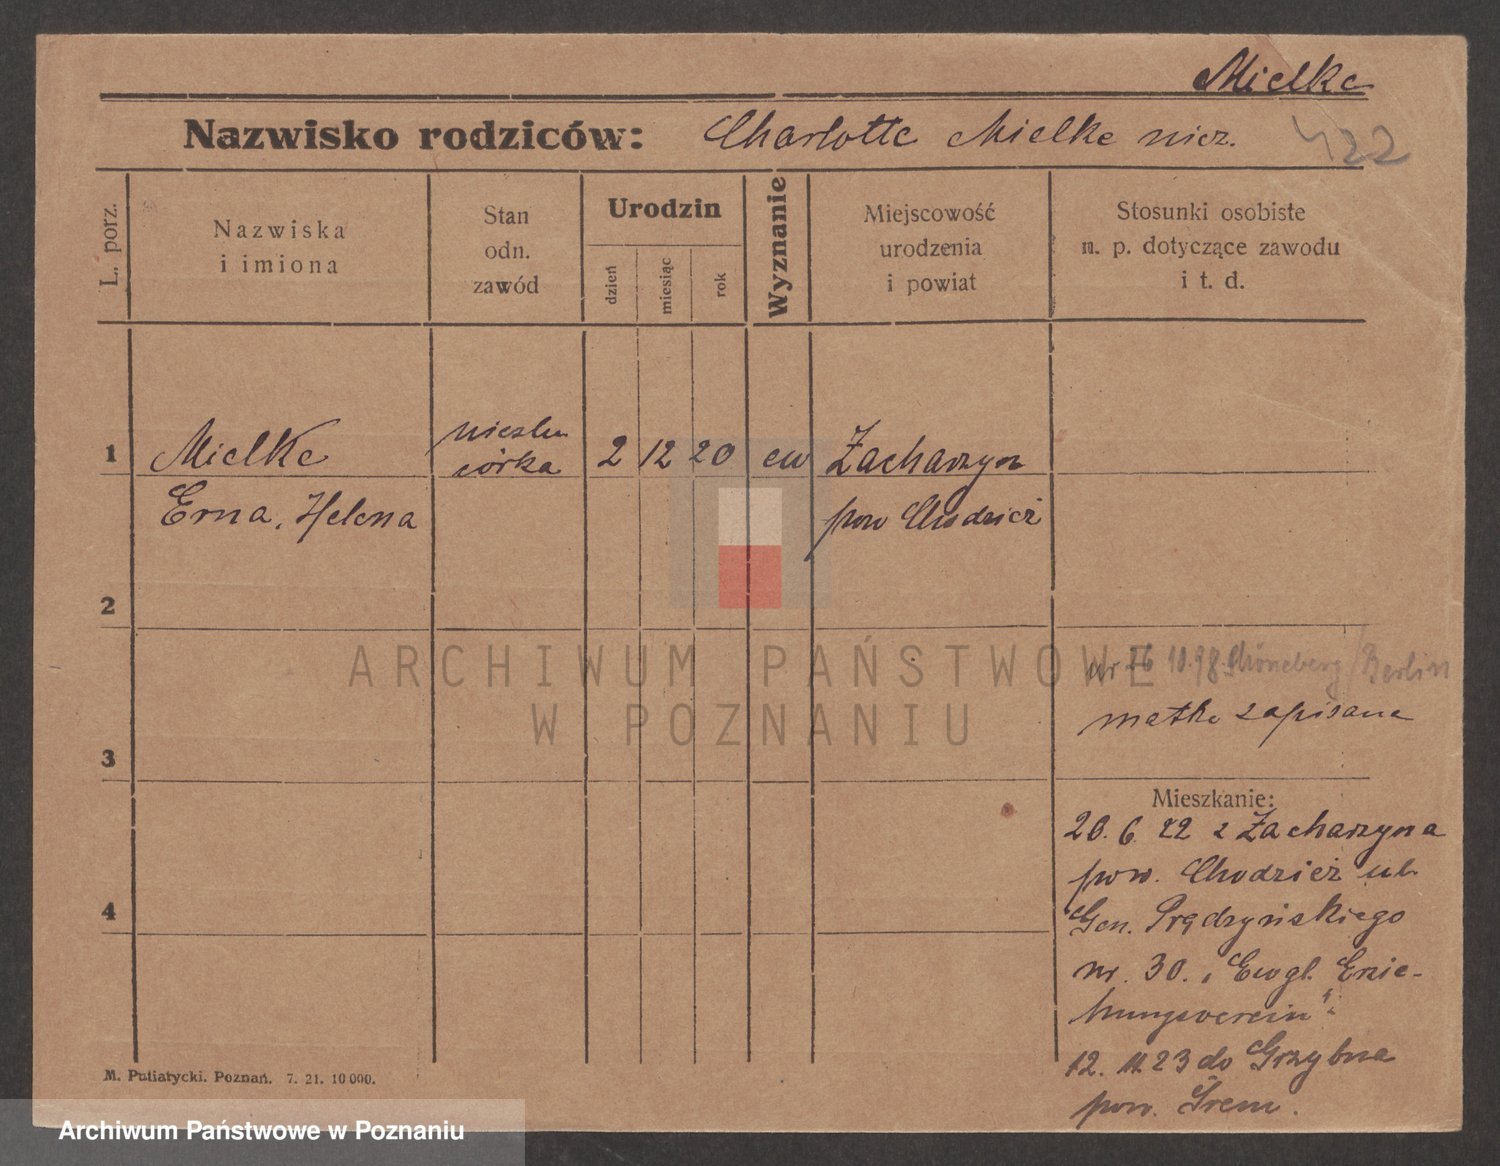 Mielke
Nazwisko rodziców: Charlotte Mielke niez.
422
L. porz.
Nazwiska
i imiona
Stan
odn.
zawód
Urodzin
dzień
miesiąc
rok
Wyznanie
Miejscowość
urodzenia
i powiat
Stosunki osobiste
n. p. dotyczące zawodu
i t. d.
1
Mielke
córka
2 12 20
ew
Zacharzyn
Erna, Helena
pow Chodzież
2
ur 26 10.98 Schöneberg/Berlin
matka zapisana
3
Mieszkanie:
20. 6. 22 z Zacharzyna
pow. Chodzież ul.
Gen. Prądzyńskiego
nr. 30. „Ewgl. Erzie-
hungsverein".
4
12. 11. 23 do Grzybna
pow. Śrem.
M. Putiatycki. Poznań. 7. 21. 10 000.
ARCHIWUM PAŃSTWOWE
W POZNANIU
Archiwum Państwowe w Poznaniu